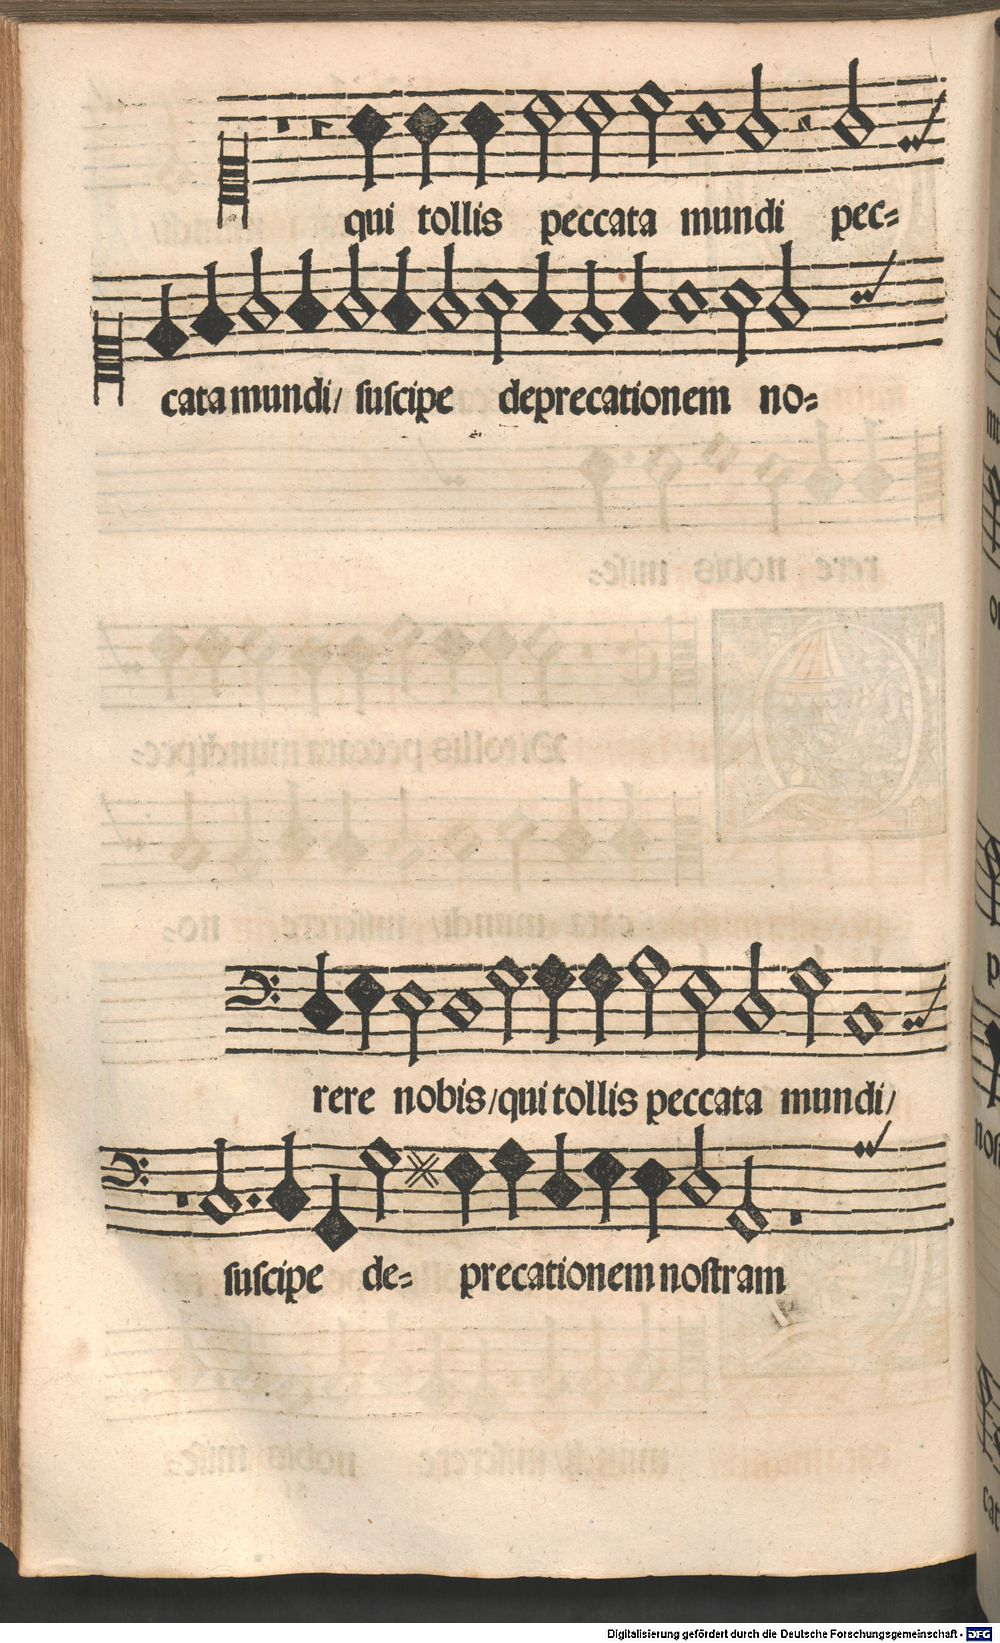 qui tollis peccata mundi pec=
cata mundi/ suſcipe deprecationem no=
rere nobis/ qui tollis peccata mundi/
suſcipe de= precationem noſtram
Digitalisierung gefördert durch die Deutsche Forschungsgemeinschaft - DFG